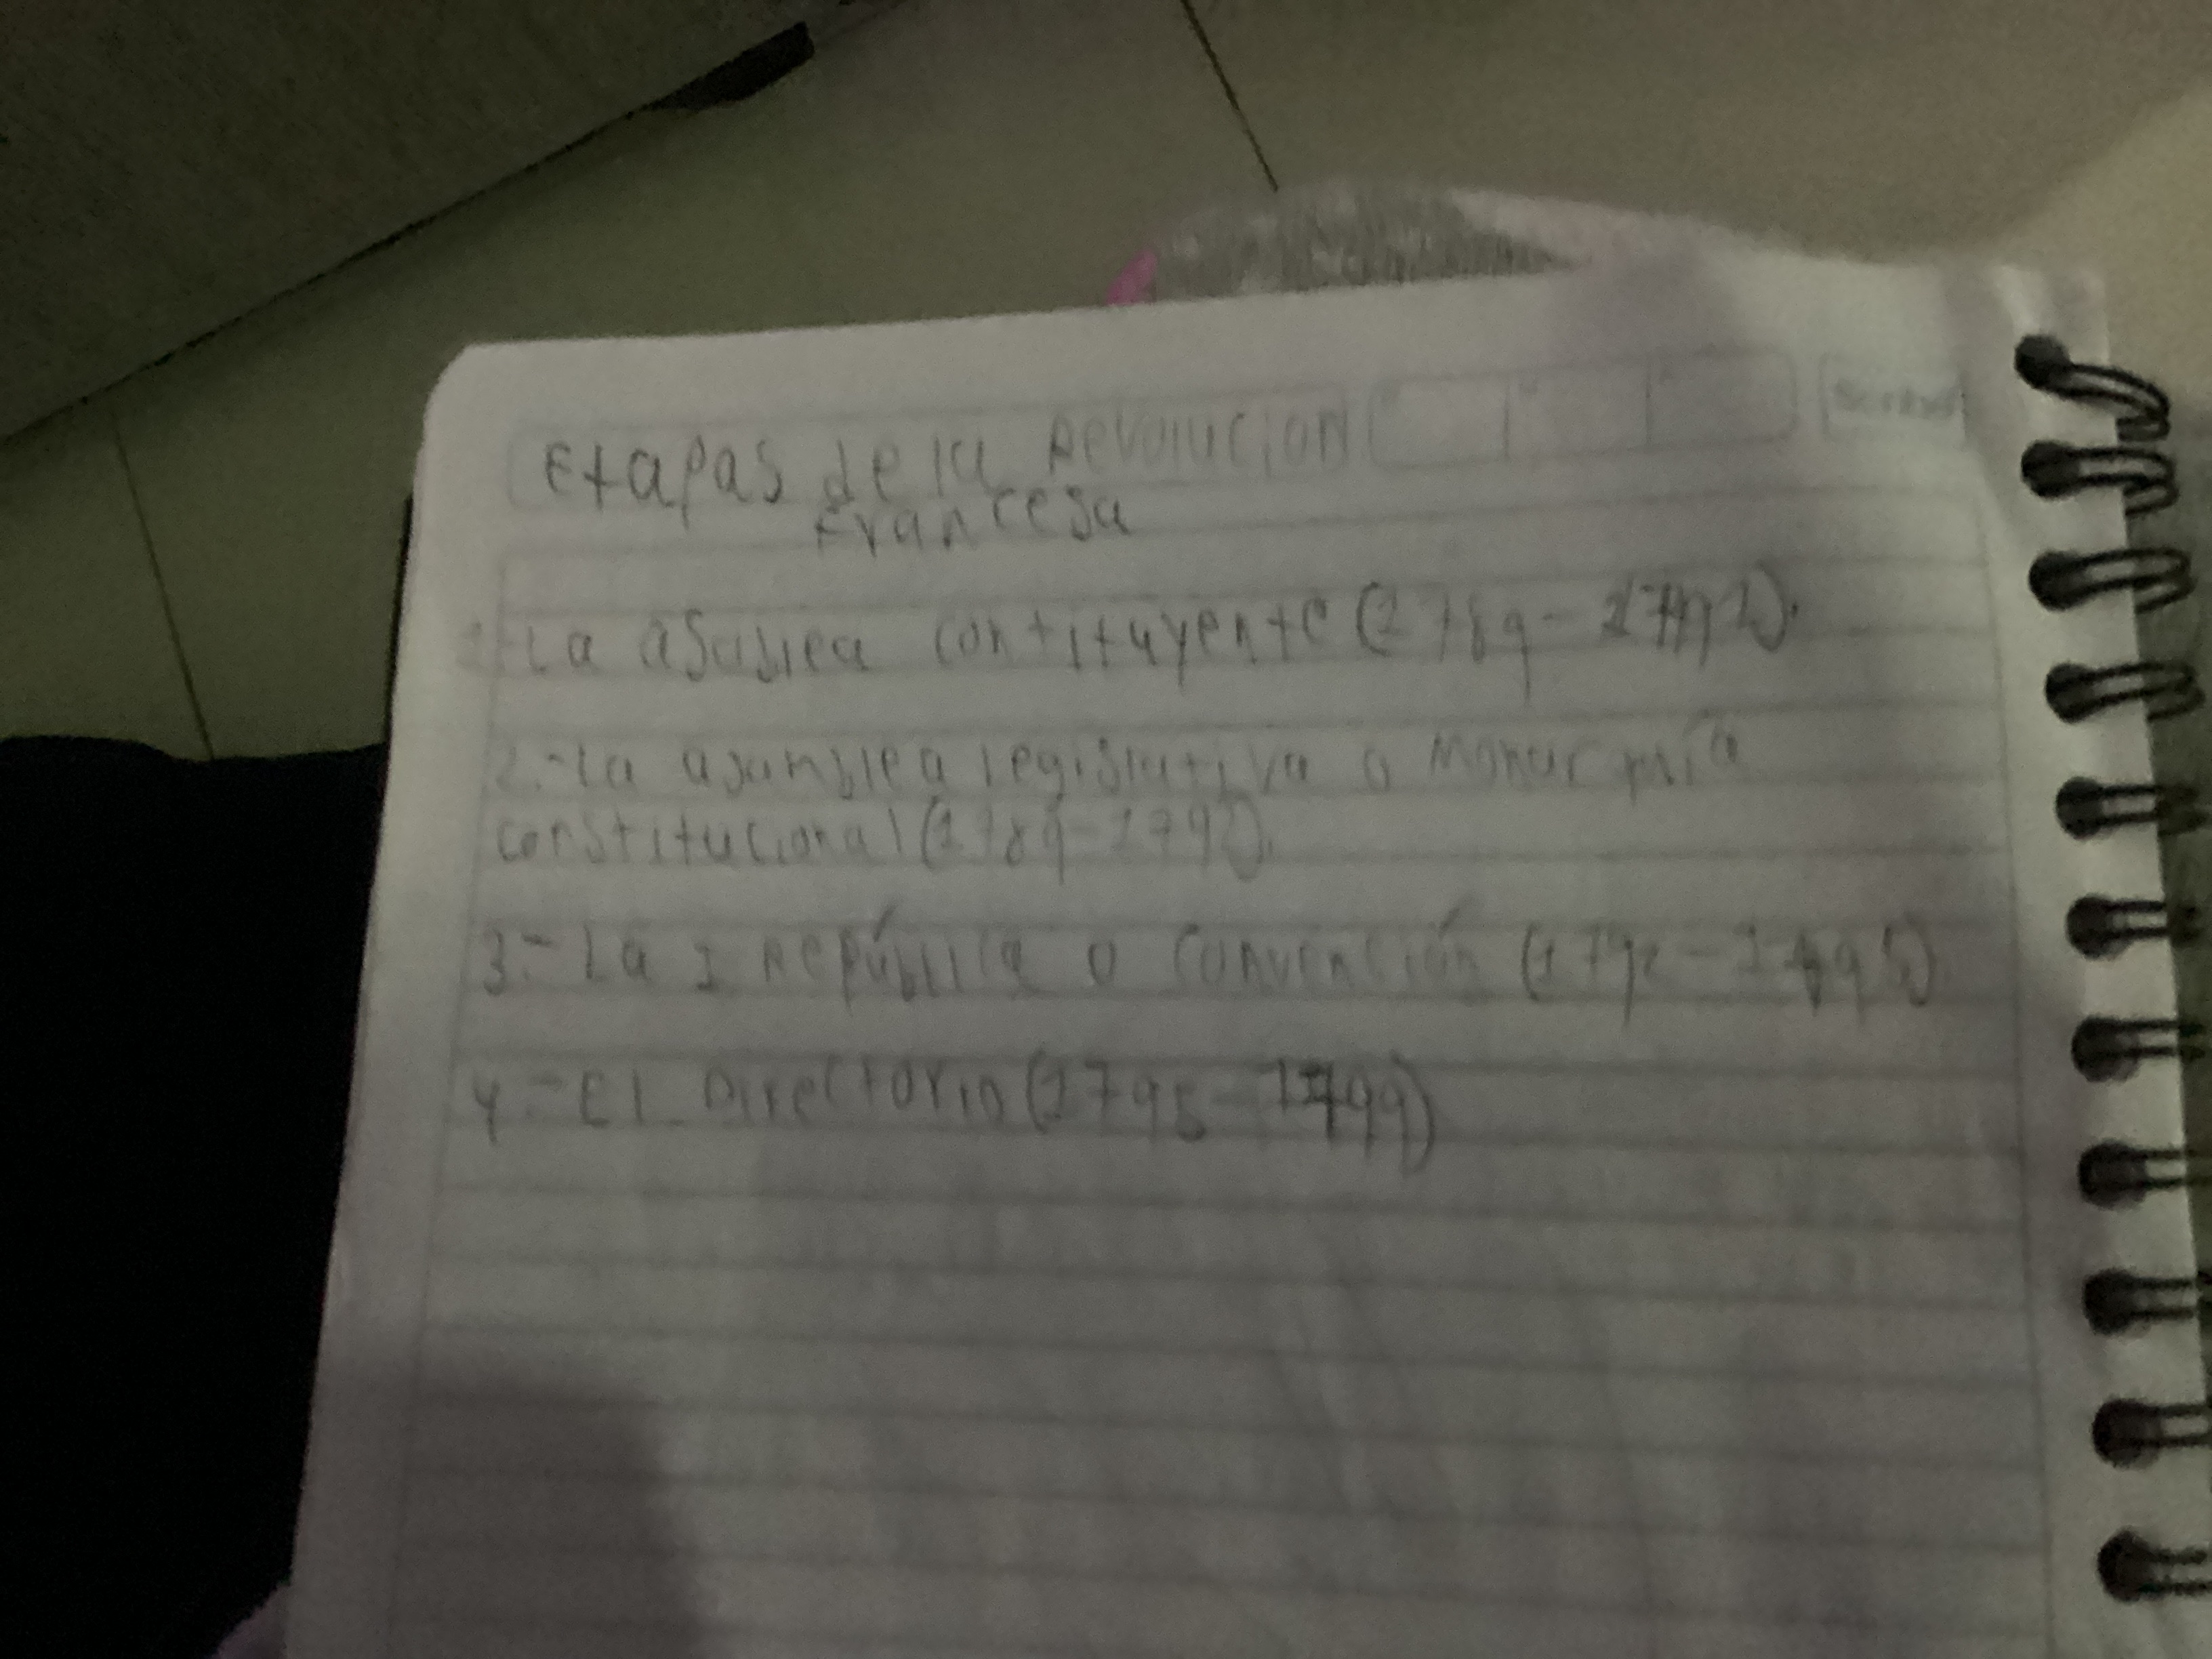 Etapas de la Revolucion
Francesa
1-La asablea contituyente (1789-1791).
2.-La asamblea legislativa o Monarquía
constitucional (1789-1792).
3.-La 1 República o Convención (1792-1795)
4-El Directorio (1795-1799)